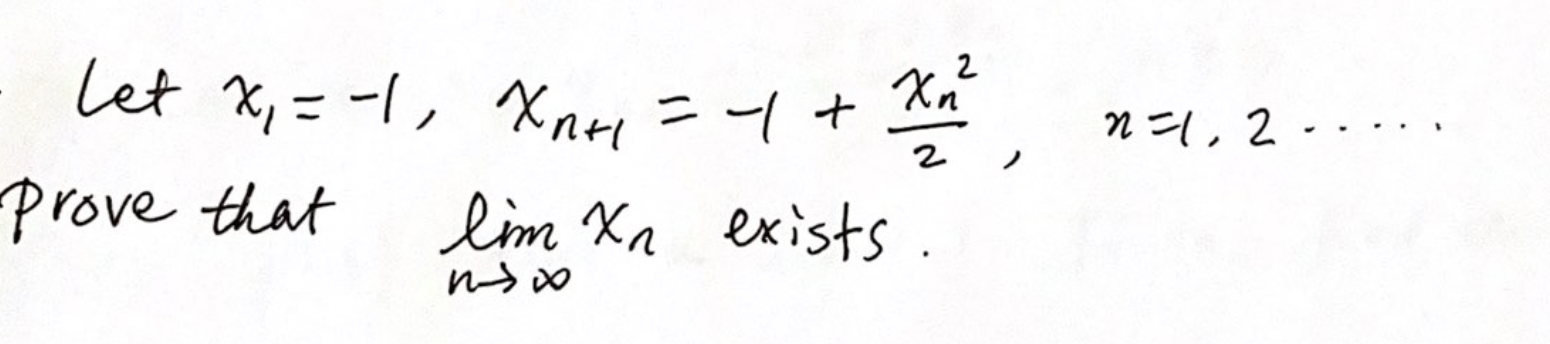 Let x₁ = -1, xₙ₊₁ = -1 + xₙ²/2, n=1, 2 ......
Prove that lim_{n→∞} xₙ exists.